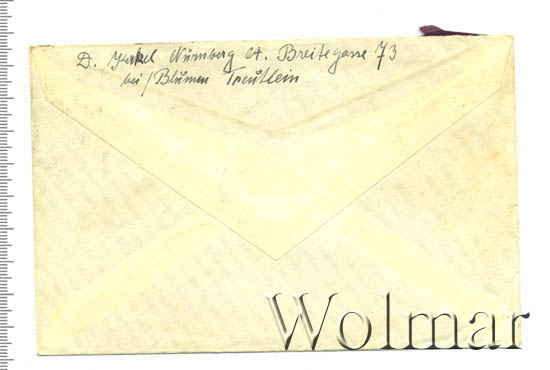 D. Jerkel Nürnberg A. Breitegasse 73
bei/Blumen Treutlein
Wolmar